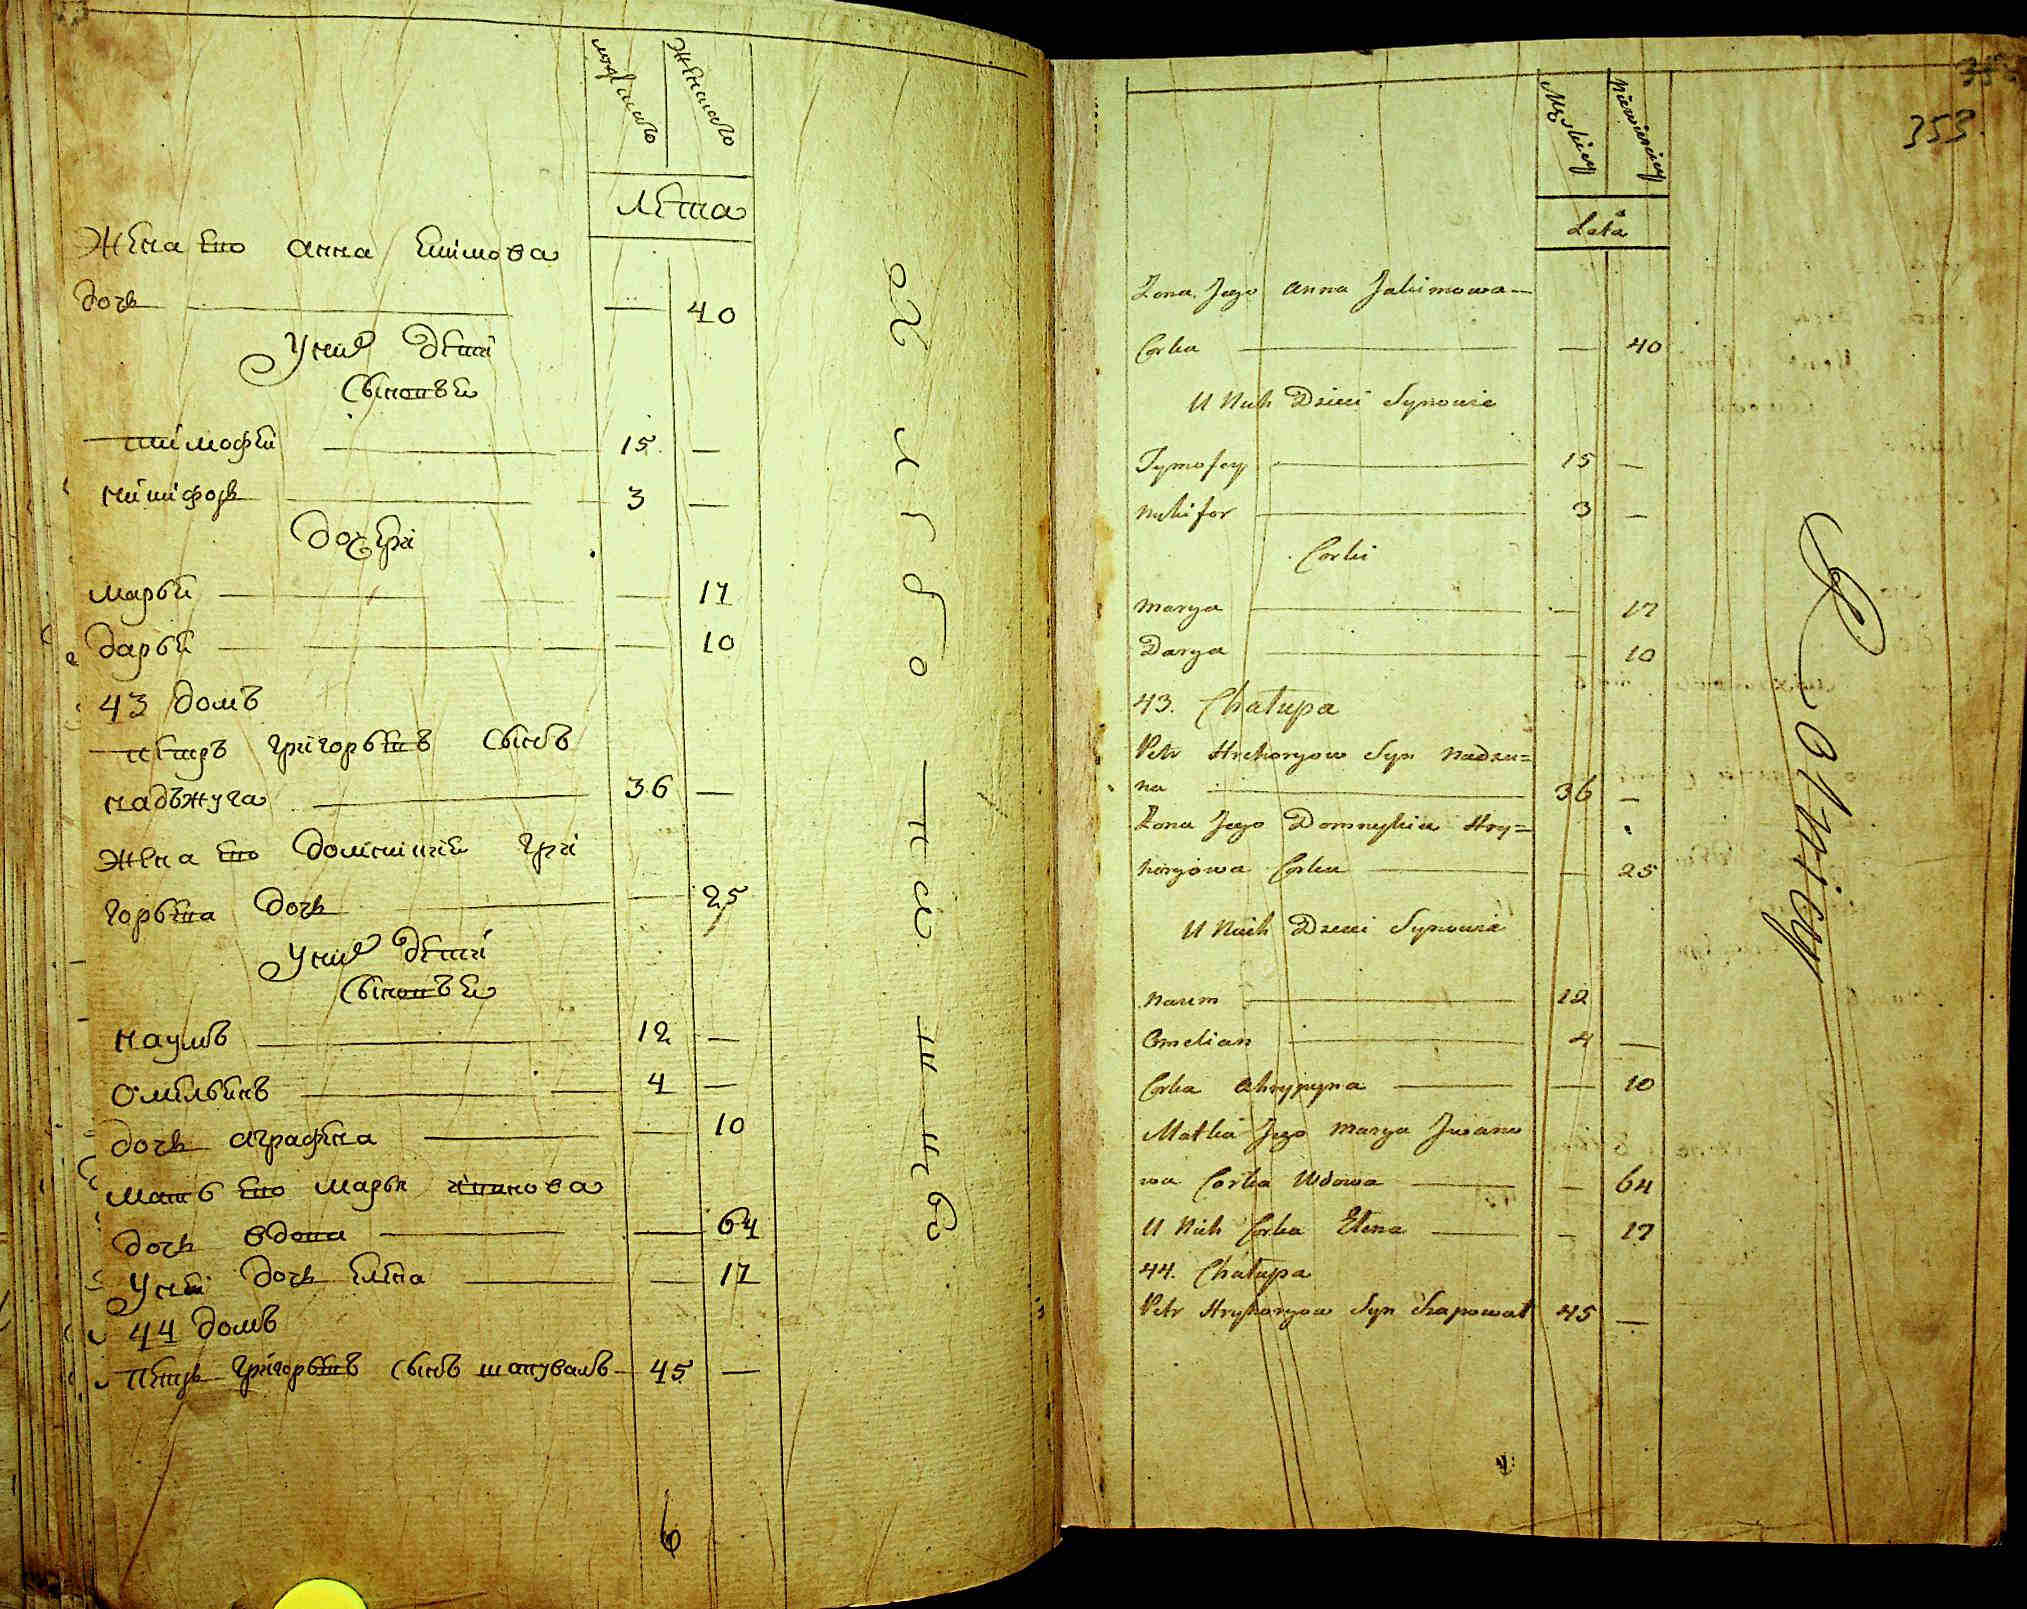 мужска́го женскаго
Лета
Жена его анна екимова
дочь — 40
У них дети
Сыновеи
тимофеи 15 —
никифоръ 3 —
дочери
марьи — 17
дарьи — 10
43 домъ
петръ григорьевъ сынъ
надъжуга 36 —
жена его домникии гри
горьева дочь — 25
У них дети
Сыновеи
наумъ 12 —
Омельянъ 4 —
дочь аграфена — 10
мать его марья иванова
дочь вдова — 64
У неи дочь елена — 17
44 домъ
Петръ григорьевъ сынъ шаповалъ 45 —
6
353
Męskiey Niewieściey
Lata
Żona Jego Anna Jakimowa
Corka — 40
U Nich Dzieci Synowie
Tymofey 15 —
Nikifor 3 —
Corki
Marya — 17
Darya — 10
43. Chałupa
Petr Hrehoryow Syn Nadzu=
na 36 —
Żona Jego Domnykia Hry=
horyowa Corka — 25
U Nich Dzieci Synowie
Naum 12
Omelian 4 —
Corka Ahrypyna — 10
Matka Jego Marya Iwano
wa Corka Wdowa — 64
U Nich Corka Elena — 17
44. Chałupa
Petr Hryhoryow Syn Szapował 45 —